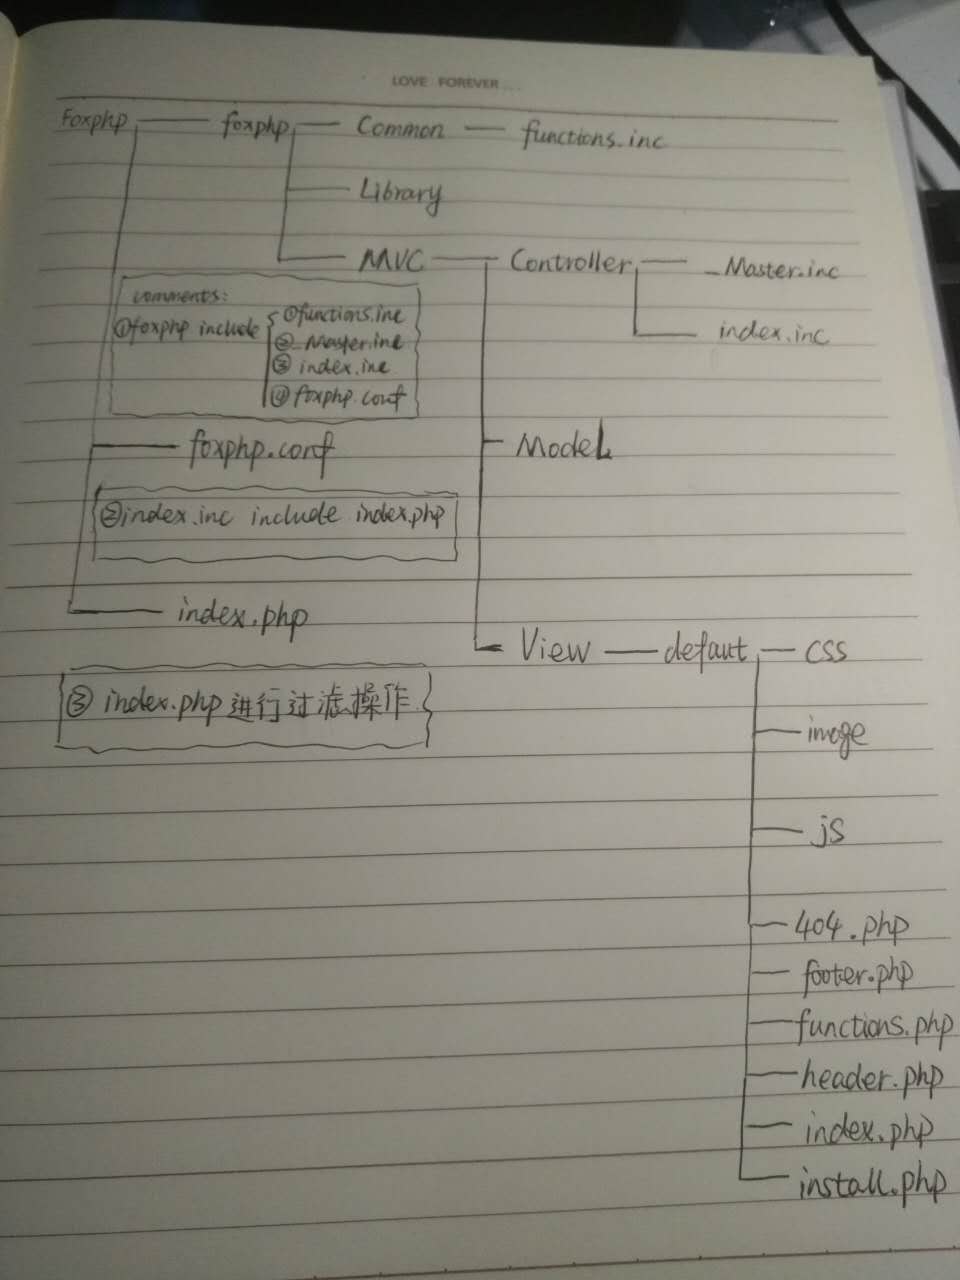 LOVE FOREVER...
Foxphp foxphp Common functions.inc
Library
MVC Controller _Master.inc
comments:
①foxphp include ①functions.inc
②_Master.inc
③index.inc
④foxphp.conf
index.inc
foxphp.conf
Model
②index.inc include index.php
index.php
View defaut css
③index.php进行过滤操作
imoge
js
404.php
footer.php
functions.php
header.php
index.php
install.php